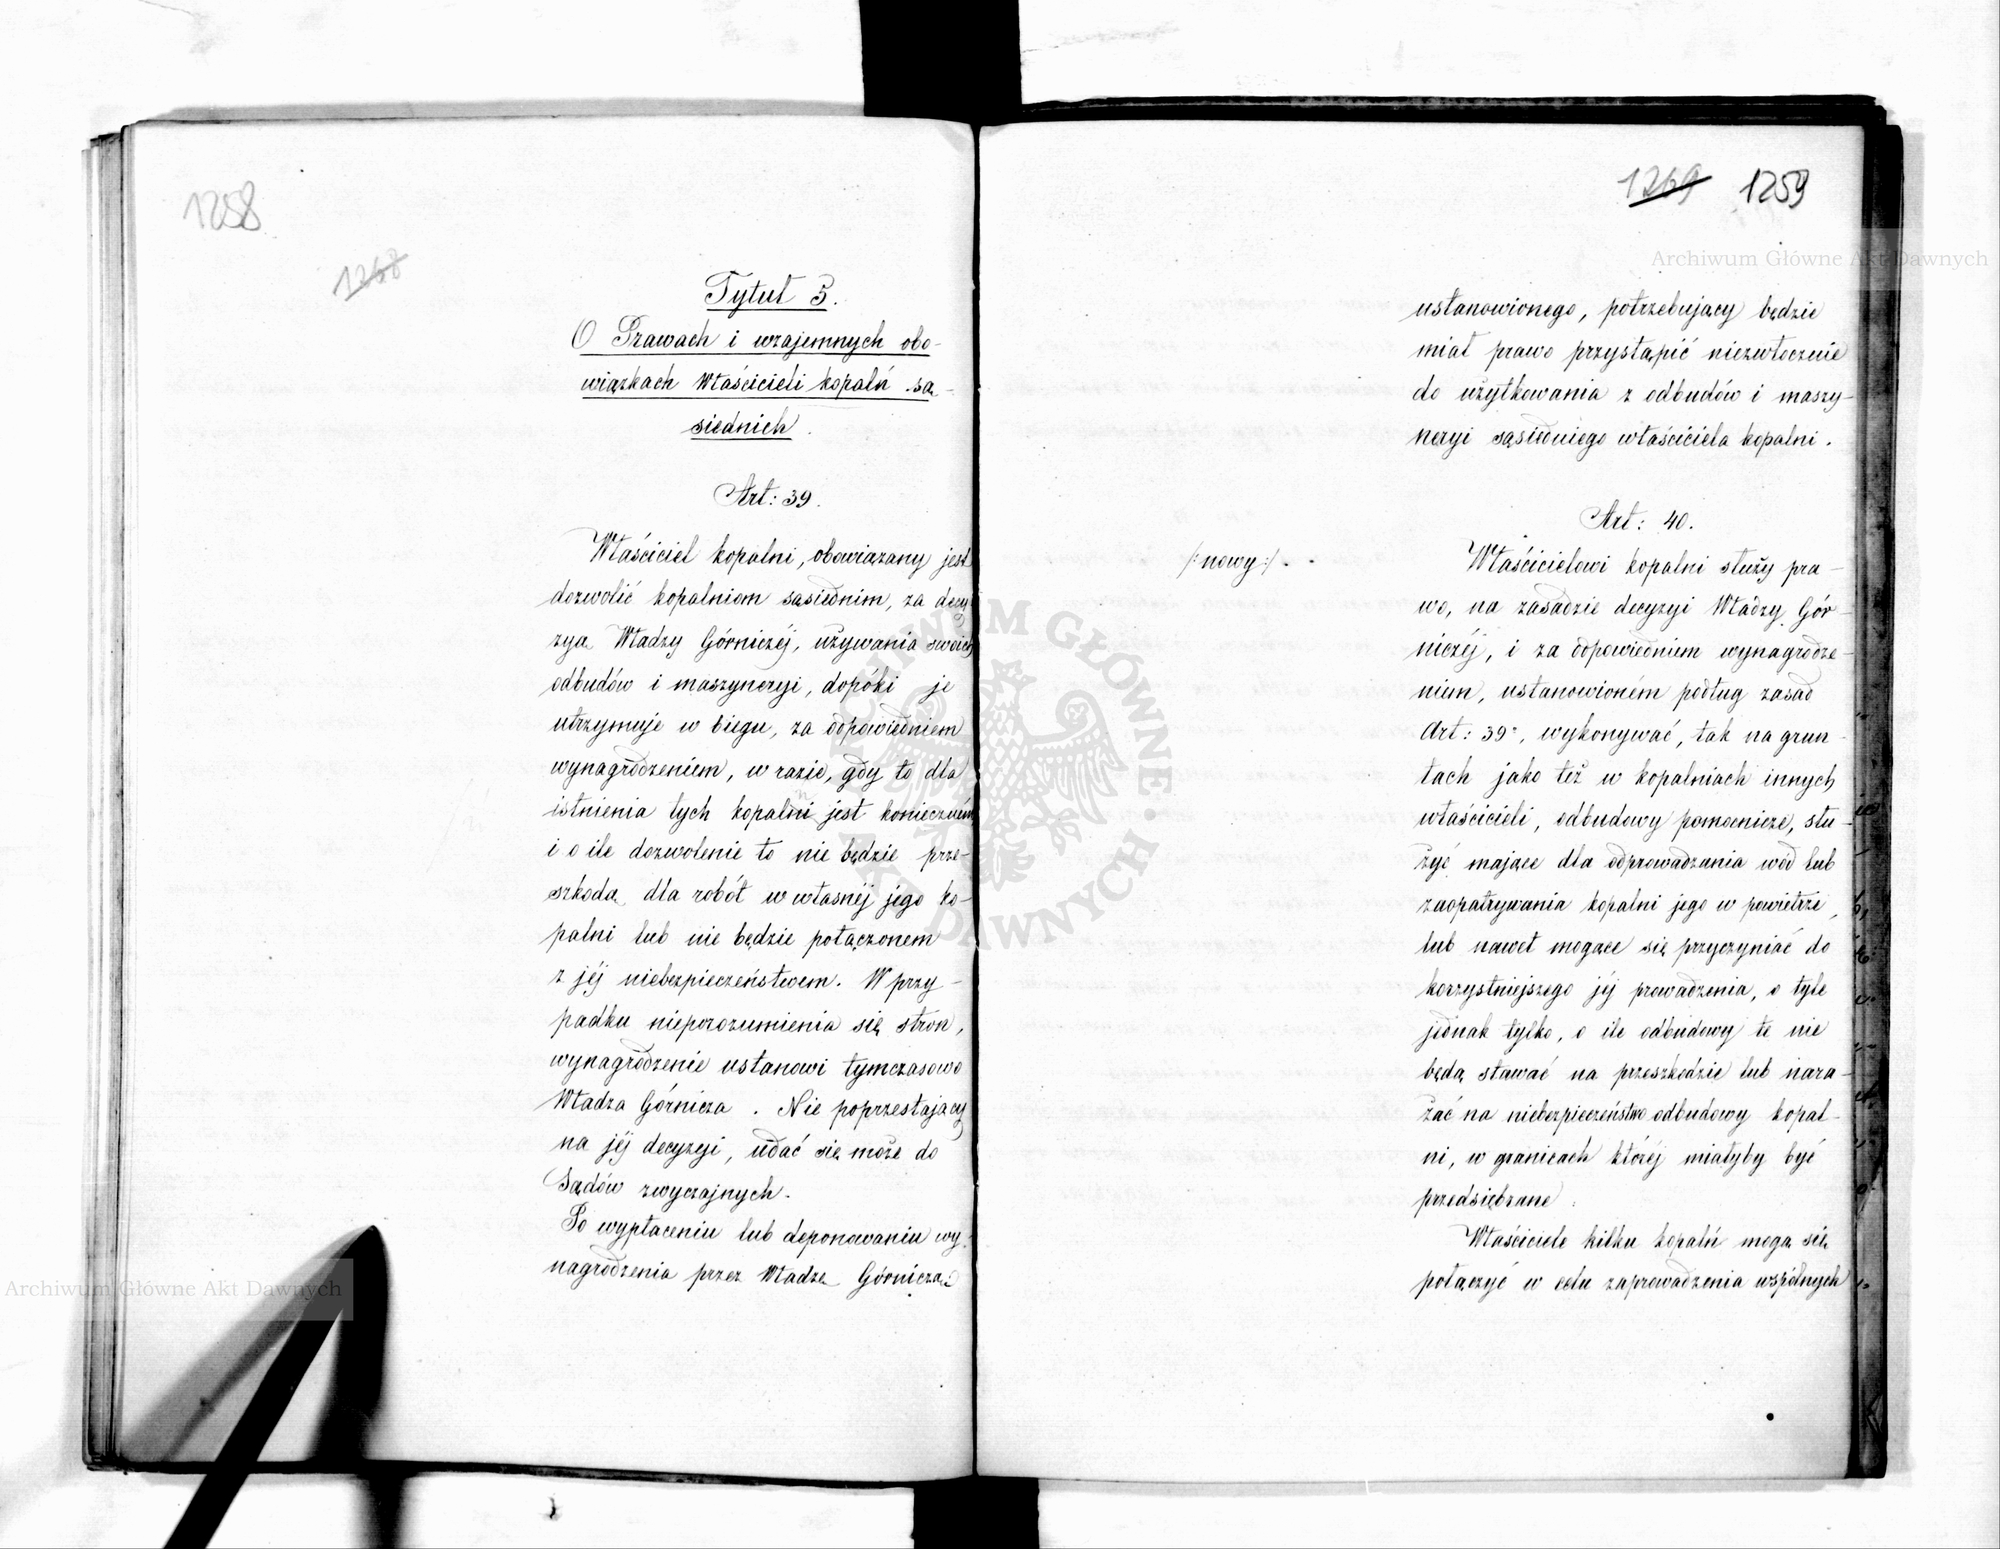 1258
1268
Tytuł 5.
O Prawach i wzajemnych obo-
wiązkach Właścicieli kopalń są-
siednich.
Art: 39.
Właściciel kopalni, obowiązany jest
dozwolić kopalniom sąsiednim, za decy
zyą Władzy Górniczéj, używania swoich
odbudów i maszyneryi, dopóki je
utrzymuje w biegu, za odpowiedniem
wynagrodzeniem, w razie, gdy to dla
istnienia tych kopalni jest konieczném
i o ile dozwolenie to nie będzie prze-
szkodą dla robót w własnéj jego ko-
palni lub nie będzie połączonem
z jéj niebezpieczeństwem. W przy-
padku nieporozumienia się stron,
wynagrodzenie ustanowi tymczasowo
Władza Górnicza. Nie poprzestający
na jéj decyzyi, udać się może do
Sądów zwyczajnych.
Po wypłaceniu lub deponowaniu wy-
nagrodzenia przez Władzę Górniczą
1269 1259
ustanowionego, potrzebujący będzie
miał prawo przystąpić niezwłocznie
do użytkowania z odbudów i maszy-
neryi sąsiedniego właściciela kopalni.
Art: 40.
/:nowy:/ . .
Właścicielowi kopalni służy pra-
wo, na zasadzie decyzyi Władzy Gór-
niczéj, i za odpowiedniem wynagrodze-
niem, ustanowioném podług zasad
Art: 39°, wykonywać, tak na grun-
tach jako też w kopalniach innych
właścicieli, odbudowy pomocnicze, słu-
żyć mające dla odprowadzania wód lub
zaopatrywania kopalni jego w powietrze,
lub nawet mogące się przyczyniać do
korzystniejszego jéj prowadzenia, o tyle
jednak tylko, o ile odbudowy te nie
będą stawać na przeszkodzie lub nara-
żać na niebezpieczeństwo odbudowy kopal-
ni, w granicach któréj miałyby być
przedsiębrane.
Właściciele kilku kopalń mogą się
połączyć w celu zaprowadzenia wspólnych
Archiwum Główne Akt Dawnych
Archiwum Główne Akt Dawnych
ARCHIWUM GŁÓWNE AKT DAWNYCH